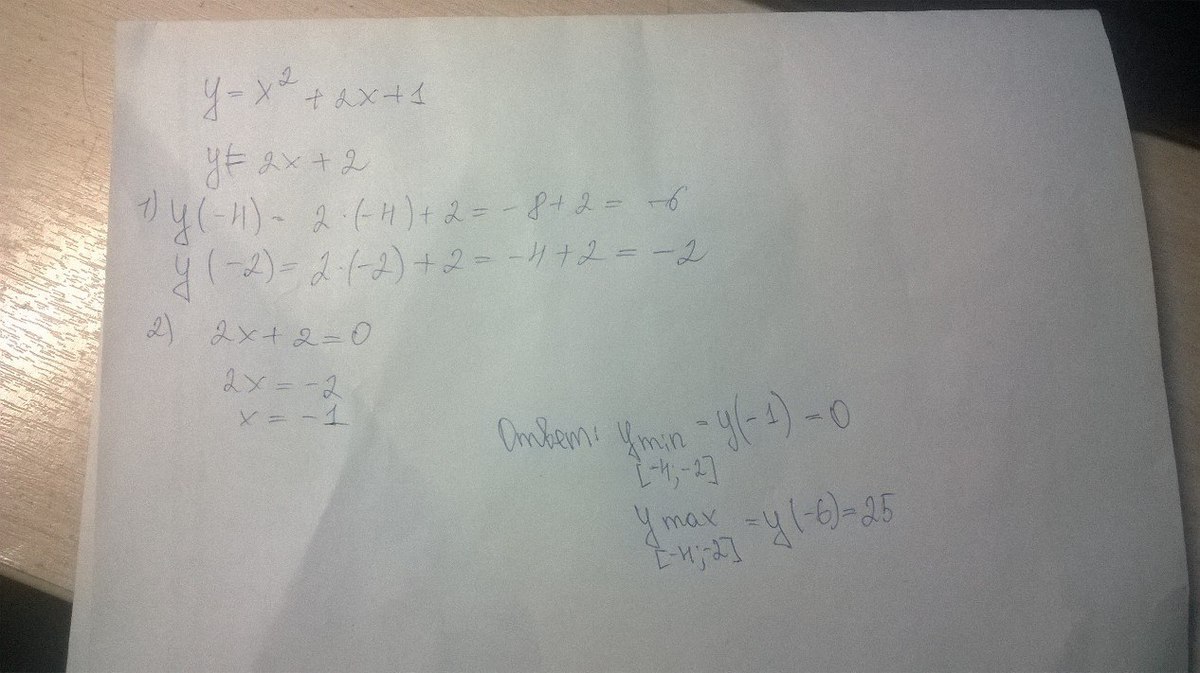 y = x² + 2x + 1
y' = 2x + 2
1) y(-4) = 2·(-4) + 2 = -8 + 2 = -6
y(-2) = 2·(-2) + 2 = -4 + 2 = -2
2) 2x + 2 = 0
2x = -2
x = -1
Ответ: y min = y(-1) = 0
[-4; -2]
y max = y(-6) = 25
[-4; -2]